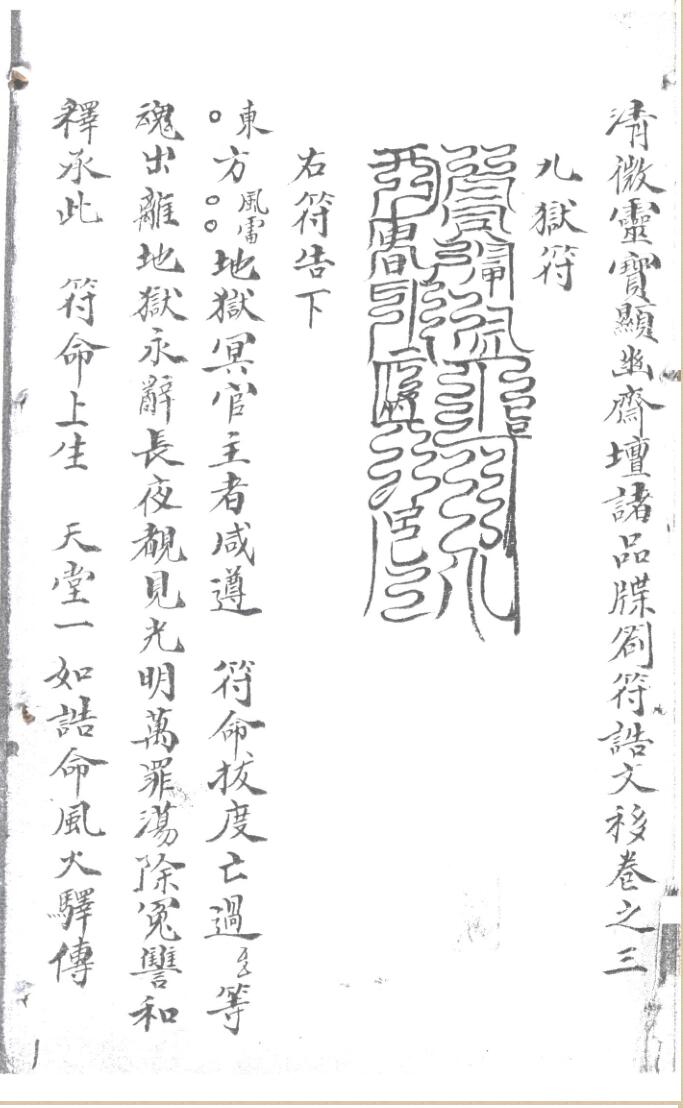 清微靈寶顯幽齋壇諸品牒劄符誥文移卷之三
九獄符
右符告下
東方風雷地獄冥官主者咸遵　符命拔度亡過等
魂出離地獄永辭長夜覩見光明萬罪蕩除冤讐和
釋承此　符命上生　天堂一如誥命風火驛傳